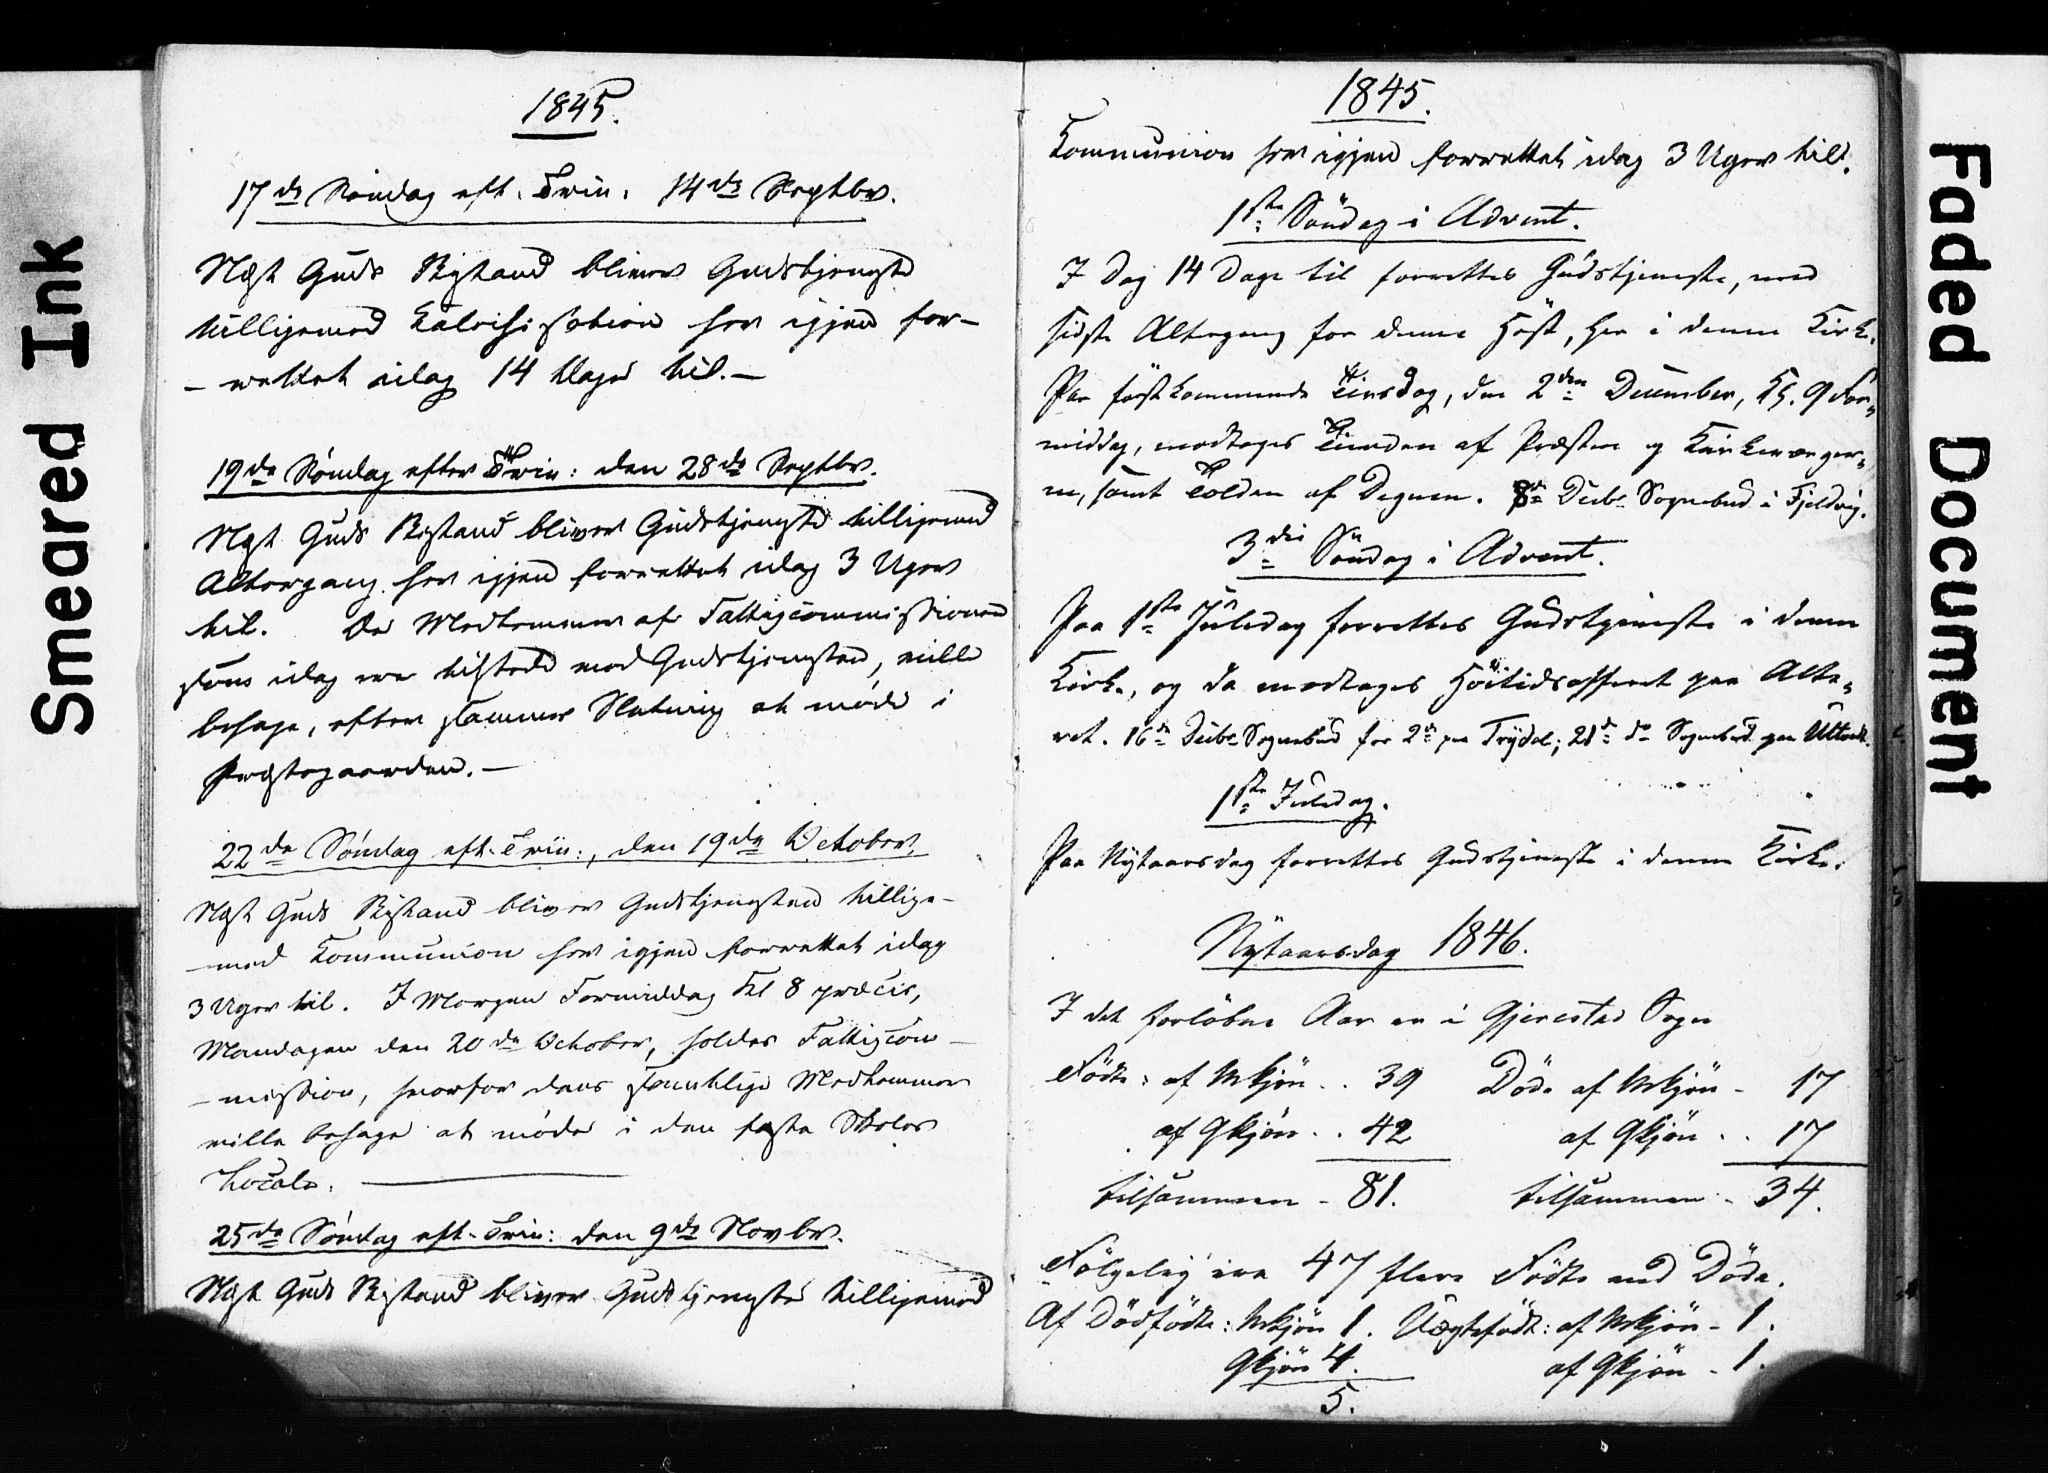 Smeared Ink
1845.
17de Søndag eft. Trin. 14de Septbr.
Næst Guds Bistand bliver Gudstjeneste
tilligemed Catechisation her igjen for-
- rettet idag 14 Dage til. -
19de Søndag efter Trin: den 28de Septbr.
Næst Guds Bistand bliver Gudstjeneste tilligemed
Altergang her igjen forrettet idag 3 Uger
til. De Medlemmer af Fattigcommissionen
som idag ere tilstede ved Gudstjenesten, ville
behage, efter sammes Slutning at møde i
Præstegaarden. -
22de Søndag eft. Trin:, den 19de October.
Næst Guds Bistand bliver Gudstjenesten tillige-
- med Communion her igjen forrettet idag
3 Uger til. I Morgen Formiddag Kl 8 præcis,
Mandagen den 20de October, holdes Fattigcom-
- mission, hvorfor dens samtlige Medlemmer
ville behage at møde i den faste Skoles
Locale.
25de Søndag eft. Trin: den 9de Novbr.
Næst Guds Bistand bliver Gudstjeneste tilligemed
1845.
Communion her igjen forrettet idag 3 Uger til.
1ste Söndag i Advent.
I Dag 14 Dage til forrettes Gudstjeneste, med
sidste Altergang for denne Höst, her i denne Kirke.
Paa förstkommende Tirsdag, den 2den December, Kl. 9 For-
middag, modtages Tienden af Præsten og Kirkeværger-
ne, samt Tolden af Degnen. 8de Decbr Sognebud i Fjeldvig.
3die Söndag i Advent.
Paa 1ste Juledag forrettes Gudstjeneste i denne
Kirke, og da modtages Höitidsofferet paa Alte-
ret. 16de Decbr Sognebud for 2de paa Trydal; 21de do Sognebud paa
1ste Juledag.
Paa Nytaarsdag forrettes Gudstjeneste i denne Kirke.
Nytaarsdag 1846.
I det forløbne Aar er i Gjerestad Sogn
Födte: af Mkjön . . 39 Döde af Mkjön - 17
af Qkjön . . 42 af Qkjön . . 17
tilsammen - 81. tilsammen - 34.
Fölgelig ere 47 flere Födte end Döde.
Af Dödfödte: Mkjön 1. Uægtefödte: af Mkjön - 1.
Qkjön 4. af Qkjön - 1.
5.
Faded Document